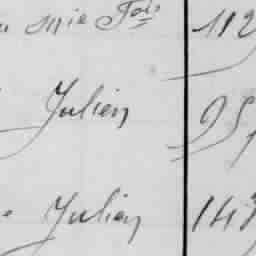 Mie Fois 112
Julien 95
Julien 143